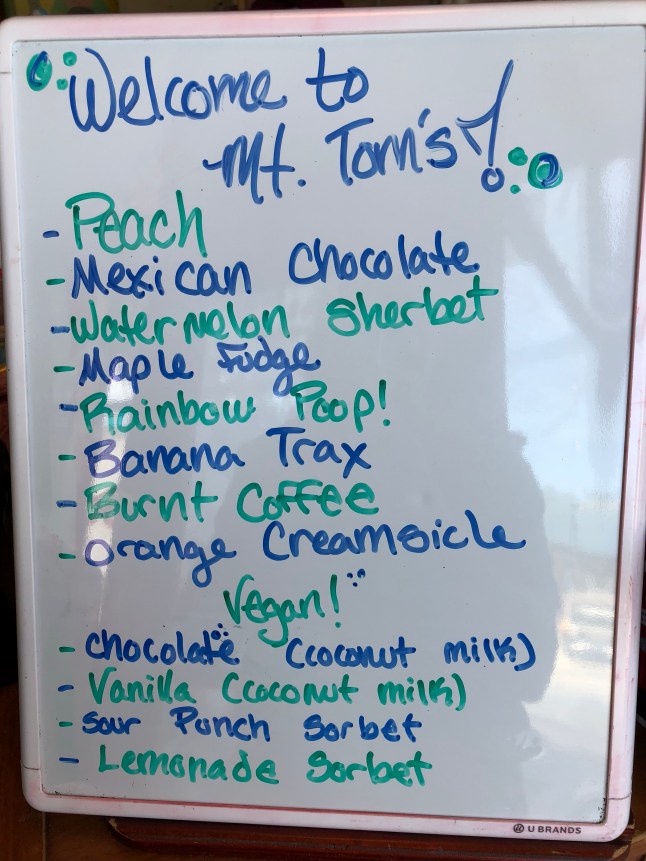 Welcome to
Mt. Tom's!
- Peach
- Mexican Chocolate
- Watermelon Sherbet
- Maple Fudge
- Rainbow Poop!
- Banana Trax
- Burnt Coffee
- Orange Creamsicle
Vegan!
- chocolate (coconut milk)
- Vanilla (coconut milk)
- Sour Punch Sorbet
- Lemonade Sorbet
U BRANDS